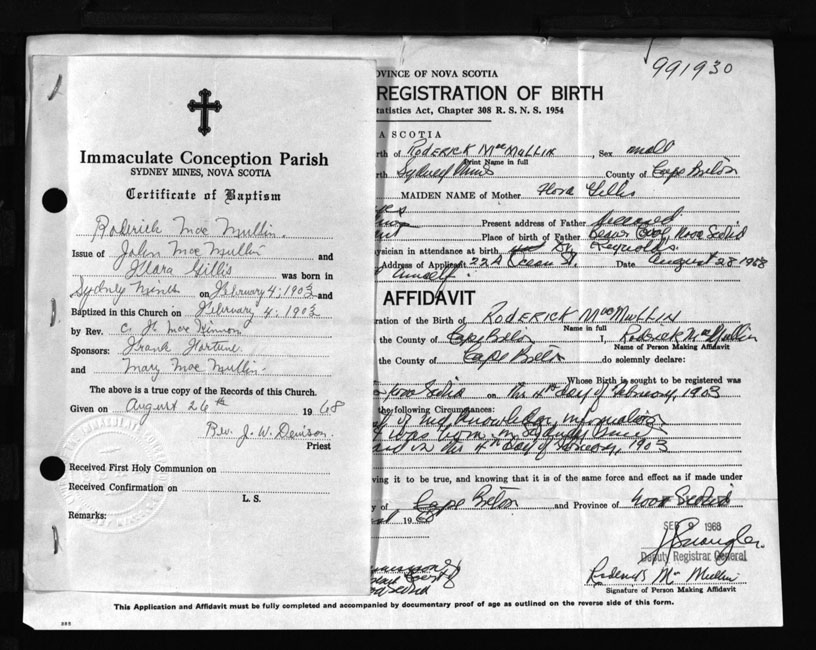 991930
OVINCE OF NOVA SCOTIA
REGISTRATION OF BIRTH
tatistics Act, Chapter 308 R. S. N. S. 1954
Immaculate Conception Parish
SYDNEY MINES, NOVA SCOTIA
Certificate of Baptism
Roderick Mac Mullin.
Issue of John Mac Mullin and
Flora Gillis was born in
Sydney Mines on February 4, 1903 and
Baptized in this Church on February 4, 1903
by Rev. C. H. Mac Kinnon
Sponsors: Frank
and Mary Mac Mullin.
The above is a true copy of the Records of this Church.
Given on August 26th 1968
Rev. J. W. Davison.
Priest
Received First Holy Communion on
Received Confirmation on
L. S.
Remarks:
A SCOTIA
rth of RODERICK MacMULLIN, Sex
Print Name in full
irth Sydney Mines County of Cape Breton
MAIDEN NAME of Mother Flora Gillis
Present address of Father Deceased
Place of birth of Father Beaver Cove, Nova Scotia
ysician in attendance at birth Dr. Reynolds
Address of Applicant 22A Ocean St. Date August 28 1968
himself.
AFFIDAVIT
ration of the Birth of RODERICK MacMULLIN
Name in full
the County of Cape Breton I, Roderick MacMullin
Name of Person Making Affidavit
the County of Cape Breton do solemnly declare:
Whose Birth is sought to be registered was
Nova Scotia on the 4th day of February, 1903
the following Circumstances:
of my knowledge, information
I was born in Sydney Mines
and on the 4th day of February, 1903
ving it to be true, and knowing that it is of the same force and effect as if made under
y of Cape Breton and Province of Nova Scotia
1968
SEP 1968
Deputy Registrar General
Roderick Mac Mullin
Signature of Person Making Affidavit
This Application and Affidavit must be fully completed and accompanied by documentary proof of age as outlined on the reverse side of this form.